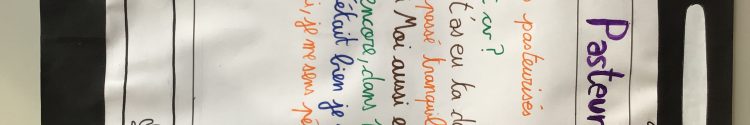 Pasteur
pasteurisés
t'as eu ta d
passé tranquil
Moi aussi e
encore, dans
était bien je
, je me sens